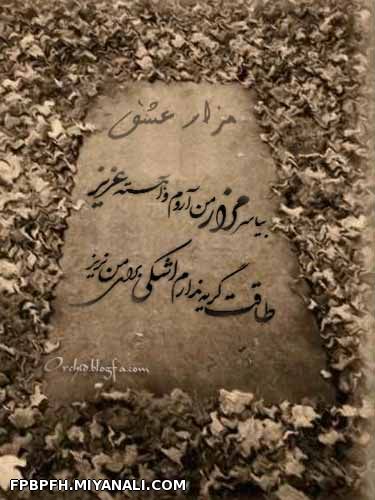 مزار عشق
بیا سر مزار من آروم و آهسته عزیز
طاقت گریه ندارم اشکی برای من نریز
Orchid.blogfa.com
FPBPFH.MIYANALI.COM